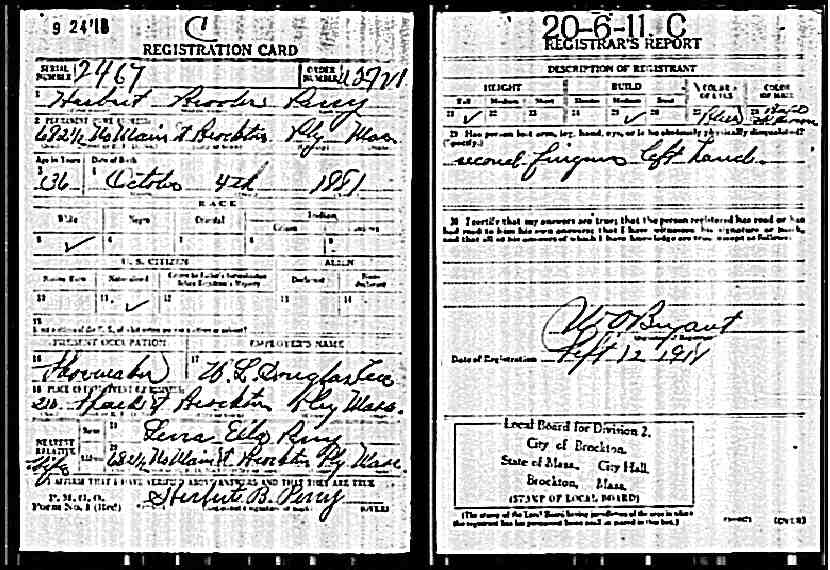 9 24 18
C
REGISTRATION CARD
SERIAL NUMBER 2467
ORDER NUMBER
1 Herbert Percy
2 PERMANENT HOME ADDRESS:
682½ No Main St Brockton Ply Mass
Age in Years
Date of Birth
3 36
4 October 4th 1881
RACE
White
Negro
Oriental
Indian
Citizen
5 ✓
6
7
8
9
U. S. CITIZEN
ALIEN
Native Born
Naturalized
Declarant
Non-declarant
10
11 ✓
12
13
14
15
PRESENT OCCUPATION
EMPLOYER'S NAME
16 Shoemaker
17 W. L. Douglas
18 PLACE OF EMPLOYMENT OR BUSINESS:
210 Spark St Brockton Ply Mass.
NEAREST RELATIVE
Name
19 Ella Percy
Address
20 682½ No Main St Brockton Ply Mass.
wife
I AFFIRM THAT I HAVE VERIFIED ABOVE ANSWERS AND THAT THEY ARE TRUE
P. M. G. O.
Form No. 1 (Red)
Herbert B. Percy
(OVER)
20-6-11. C
REGISTRAR'S REPORT
DESCRIPTION OF REGISTRANT
HEIGHT
BUILD
COLOR OF EYES
COLOR OF HAIR
Tall
Medium
Short
Slender
Medium
Stout
21 ✓
22
23
24
25 ✓
26
27 Blue
28
29 Has person lost arm, leg, hand, eye, or is he obviously physically disqualified? (Specify.)
second fingers left hand.
30 I certify that my answers are true; that the person registered has read or has
had read to him his own answers; that I have witnessed his signature or mark,
and that all of his answers of which I have knowledge are true, except as follows:
W O Bryant
Date of Registration Sept 12 1918
Local Board for Division 2.
City of Brockton.
State of Mass. City Hall.
Brockton, Mass.
(STAMP OF LOCAL BOARD)
(The stamp of the Local Board having jurisdiction of the area in which
the registrant has his permanent home shall be placed in this box.)
(OVER)